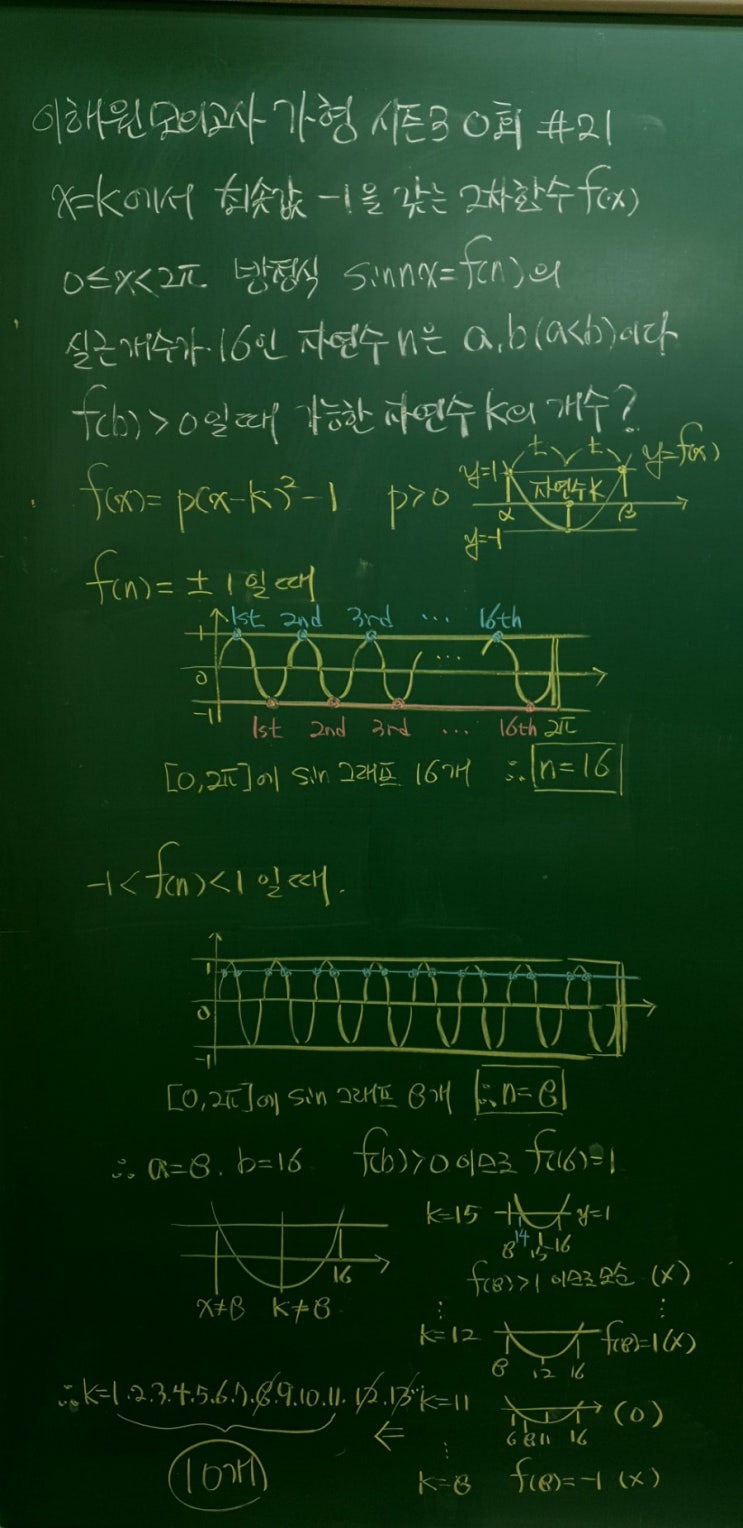 이해원모의고사 가형 시즌3 0회 #21
x=k에서 최솟값 -1을 갖는 2차함수 f(x)
0≤x<2π 방정식 sin nx=f(n)의
실근개수가 16인 자연수 n은 a,b(a<b)이다
f(b)>0일때 가능한 자연수 k의 개수?
f(x)=p(x-k)²-1 p>0
t t y=f(x)
y=1 자연수 k
α β
y=-1
f(n)=±1일때
1st 2nd 3rd ... 16th
1
0
...
-1
1st 2nd 3rd ... 16th 2π
[0,2π]에 sin 그래프 16개 ∴ n=16
-1<f(n)<1일때.
1
0
-1
[0,2π]에 sin 그래프 8개 ∴n=8
∴ a=8. b=16 f(b)>0이므로 f(16)=1
k=15 y=1
8 14 15 16
16
x≠8 k≠8
f(8)>1 이므로 모순 (x)
⋮ ⋮
k=12 f(8)=1(x)
8 12 16
∴k=1.2.3.4.5.6.7.8.9.10.11.12.13 k=11 (0)
6 8 11 16
⇐ ⋮
10개 k=8 f(8)=-1 (x)